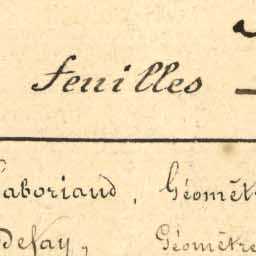 feuilles
Laboriaud, Géomèt
Defay, Géomètre